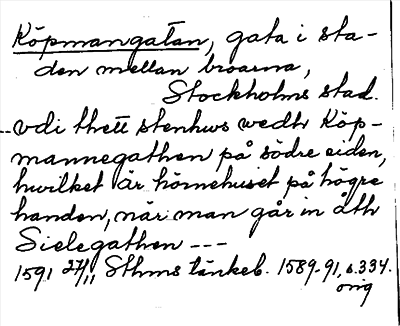 Köpmangatan, gata i sta-
den mellan broarna,
Stockholms stad.
--vdi thett stenhws wedtr Köp-
mannegathen på södre eiden,
huilket är hörnehuset på högre
handen, när man går in åth
Sielegathen ---
1591 27/11 Sthms tänkeb. 1589-91, s. 334.
orig